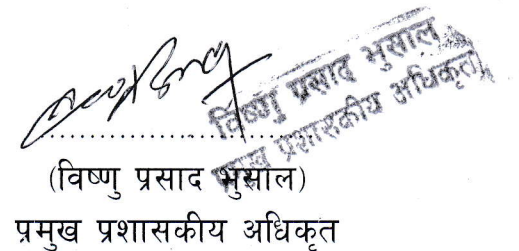 विष्णु प्रसाद भुसाल
प्रमुख प्रशासकीय अधिकृत
(विष्णु प्रसाद भुसाल)
प्रमुख प्रशासकीय अधिकृत